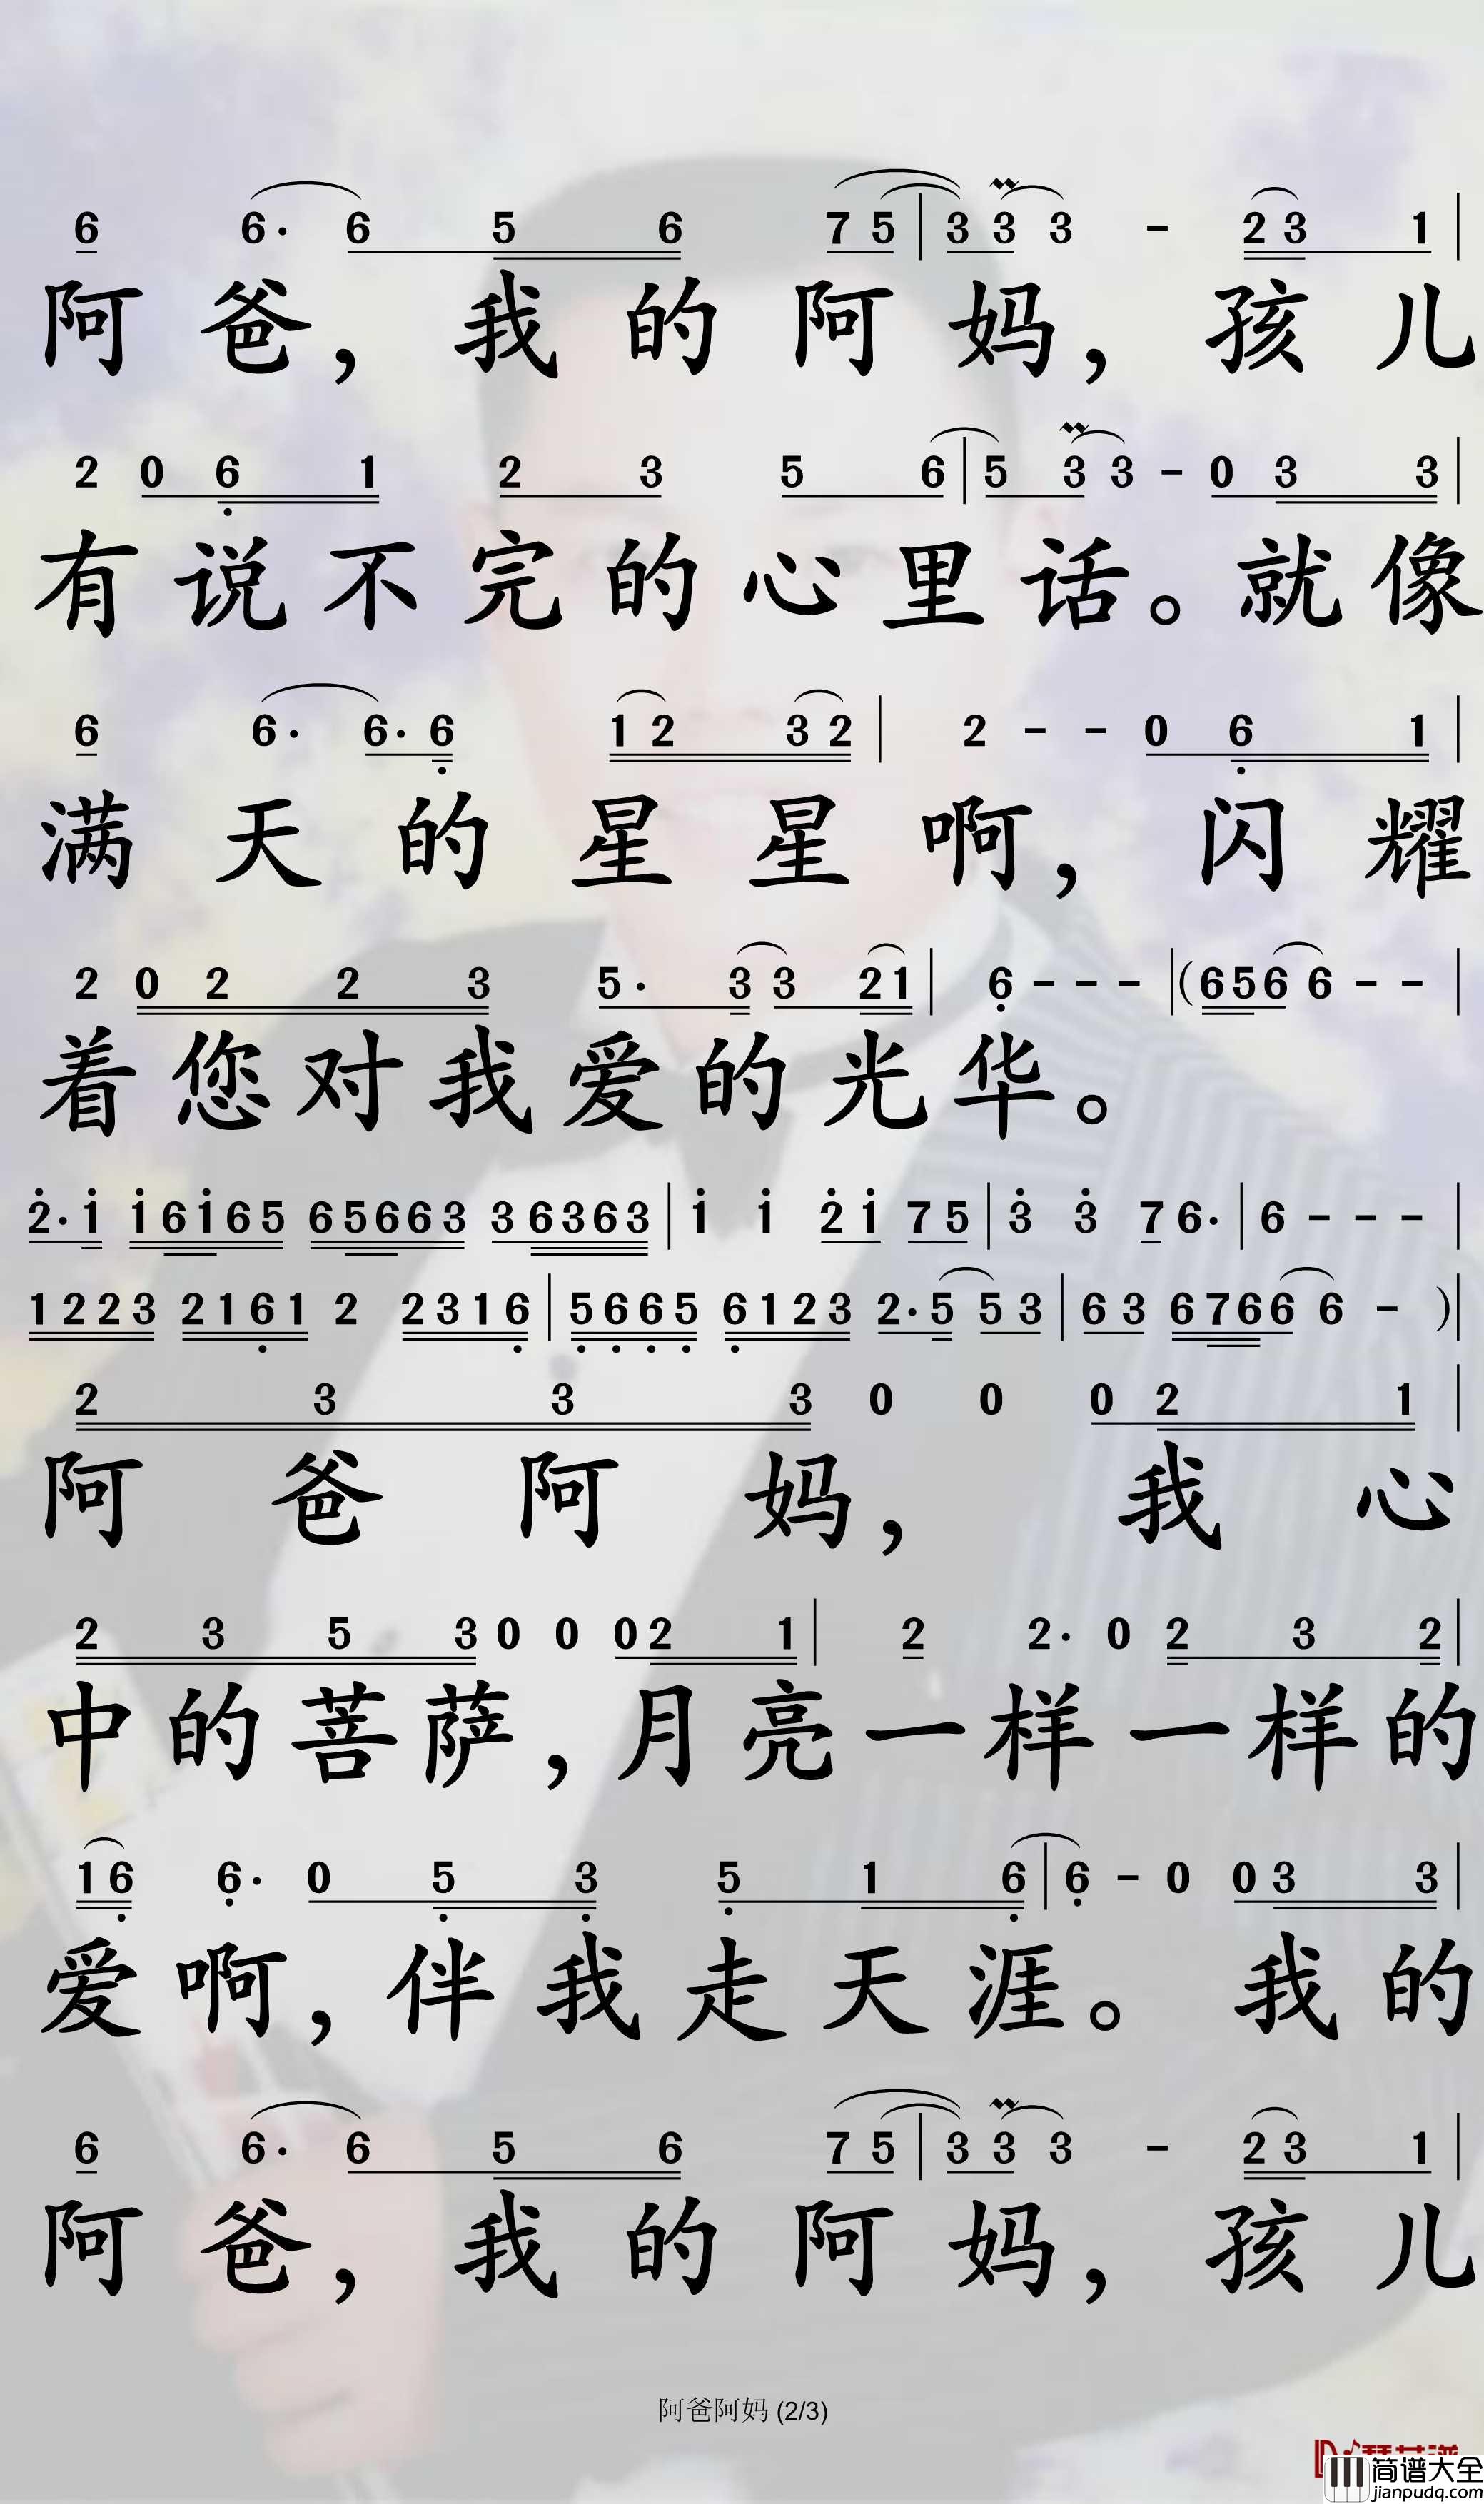 6 6· 6 5 6 7 5 | 3 3 3 - 2 3 1 |
阿爸，我的阿妈，孩儿
2 0 6 1 2 3 5 6 | 5 3 3 - 0 3 3 |
有说不完的心里话。就像
6 6· 6· 6 1 2 3 2 | 2 - - 0 6 1 |
满天的星星啊，闪耀
2 0 2 2 3 5· 3 3 2 1 | 6 - - - | (6 5 6 6 - - |
着您对我爱的光华。
2· 1 1 6 1 6 5 6 5 6 6 3 3 6 3 6 3 | 1 1 2 1 7 5 | 3 3 7 6· | 6 - - - |
1 2 2 3 2 1 6 1 2 2 3 1 6 | 5 6 6 5 6 1 2 3 2· 5 5 3 | 6 3 6 7 6 6 6 - ) |
2 3 3 3 0 0 0 2 1 |
阿爸阿妈，我心
2 3 5 3 0 0 0 2 1 | 2 2· 0 2 3 2 |
中的菩萨，月亮一样一样的
1 6 6· 0 5 3 5 1 6 | 6 - 0 0 3 3 |
爱啊，伴我走天涯。我的
6 6· 6 5 6 7 5 | 3 3 3 - 2 3 1 |
阿爸，我的阿妈，孩儿
阿爸阿妈 (2/3)
简谱大全
jianpudq.com